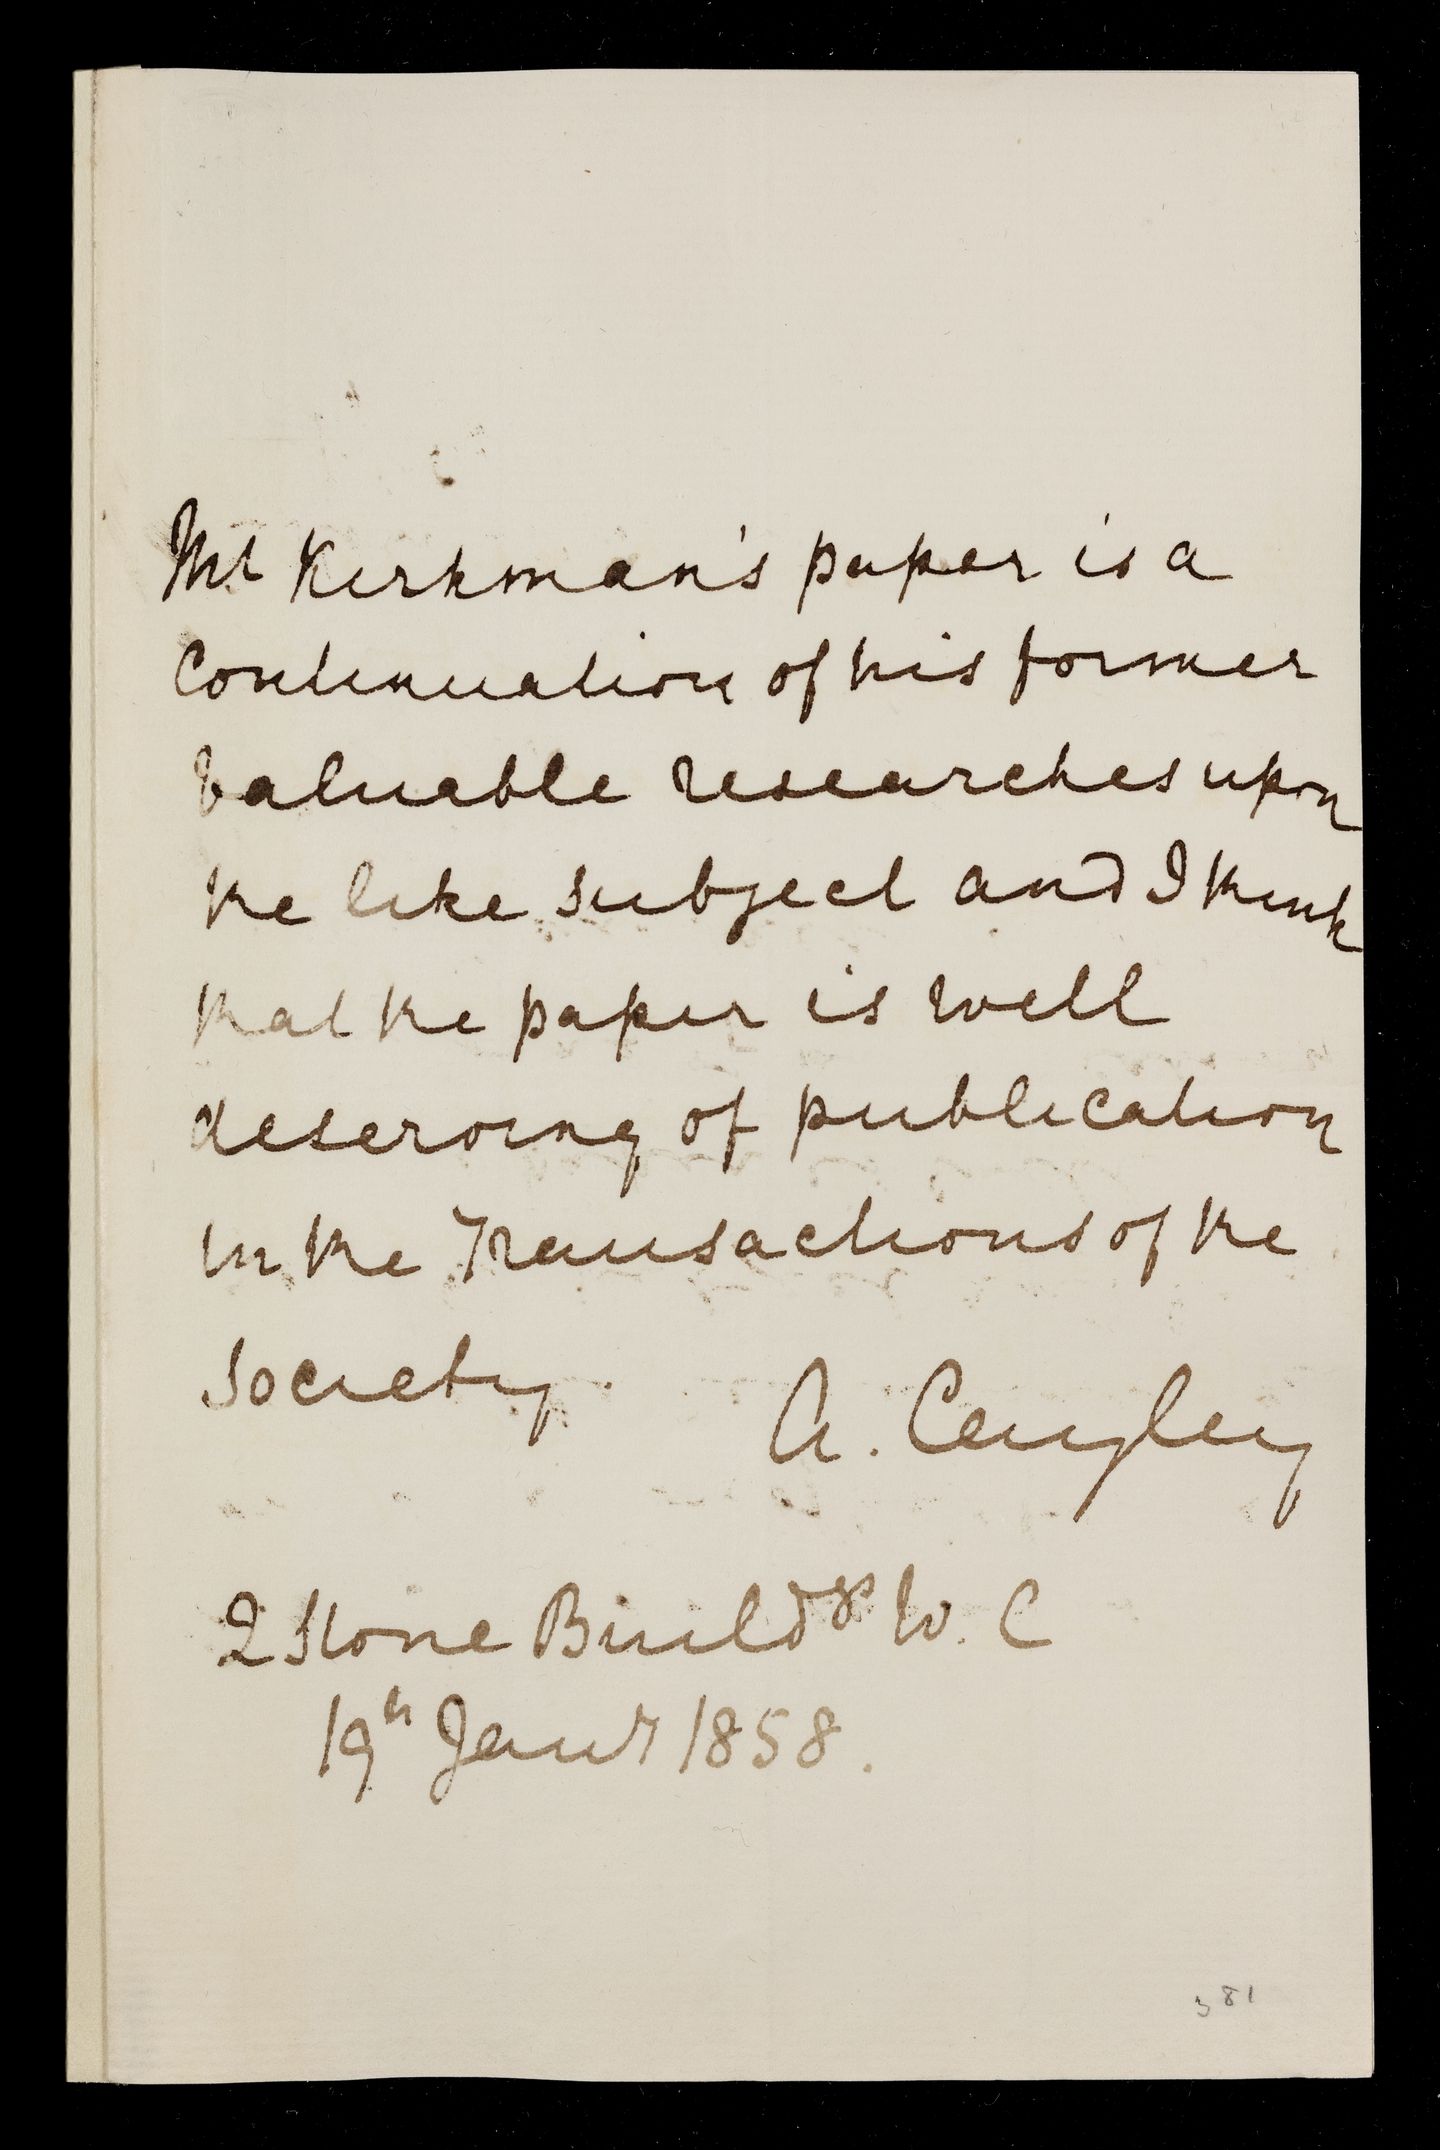 Mr Kirkman's paper is a
continuation of his former
valuable researches upon
the like subject and I think
that the paper is well
deserving of publication
in the Transactions of the
Society.
A. Cayley
2 Stone Buildgs W. C
19th Jany 1858.
381